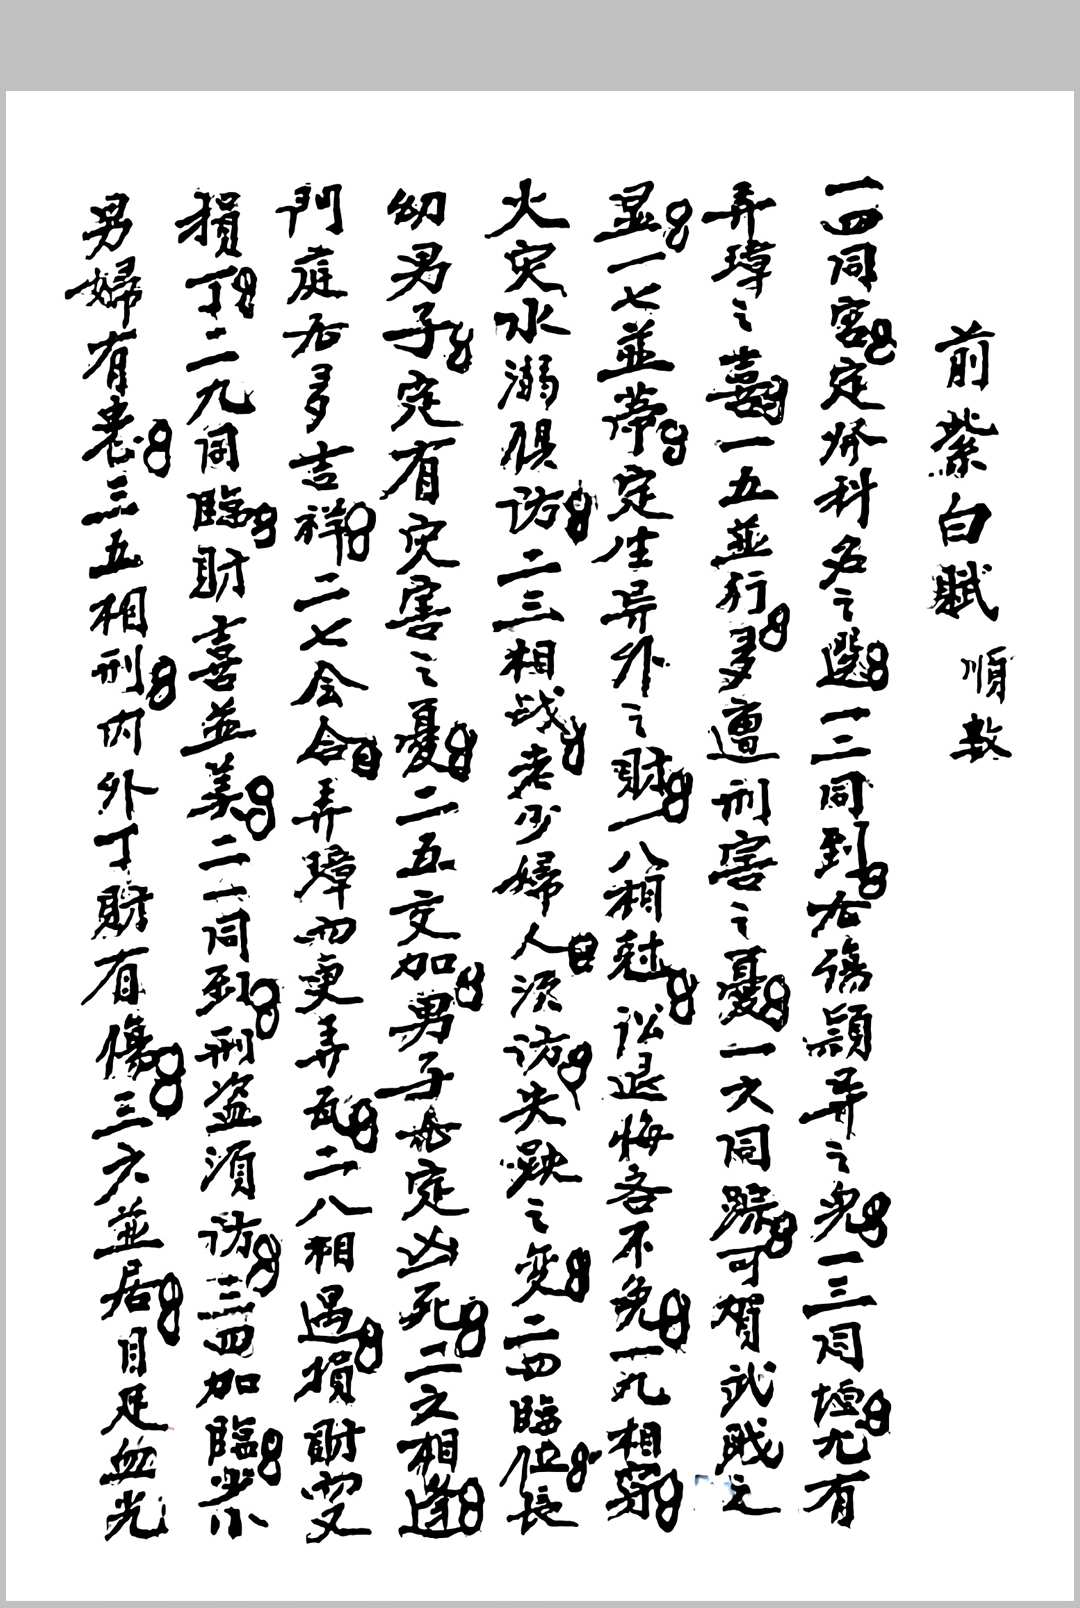 前紫白賦 順数
一四同宮定斈科名之選一二同到右傷顯弄之児一三同壇尤有
弄璋之喜一五並行多遭刑害之憂一六同躔可賀武贱之
显一七並蒂定生异外之財一八相尅訟退悔吝不免一九相穿
火灾水溺須防二三相战老少婦人須防失缺之変二四臨位長
幼男子定有灾害之憂二五交加男子定凶死二六相逢
門庭右多吉祥二七会合弄璋而更弄瓦二八相遇損財而又
損丁二九同臨財喜並美二一同到刑盗須防三四加臨
男婦有老三五相刑内外丁財有傷三六並居目足血光